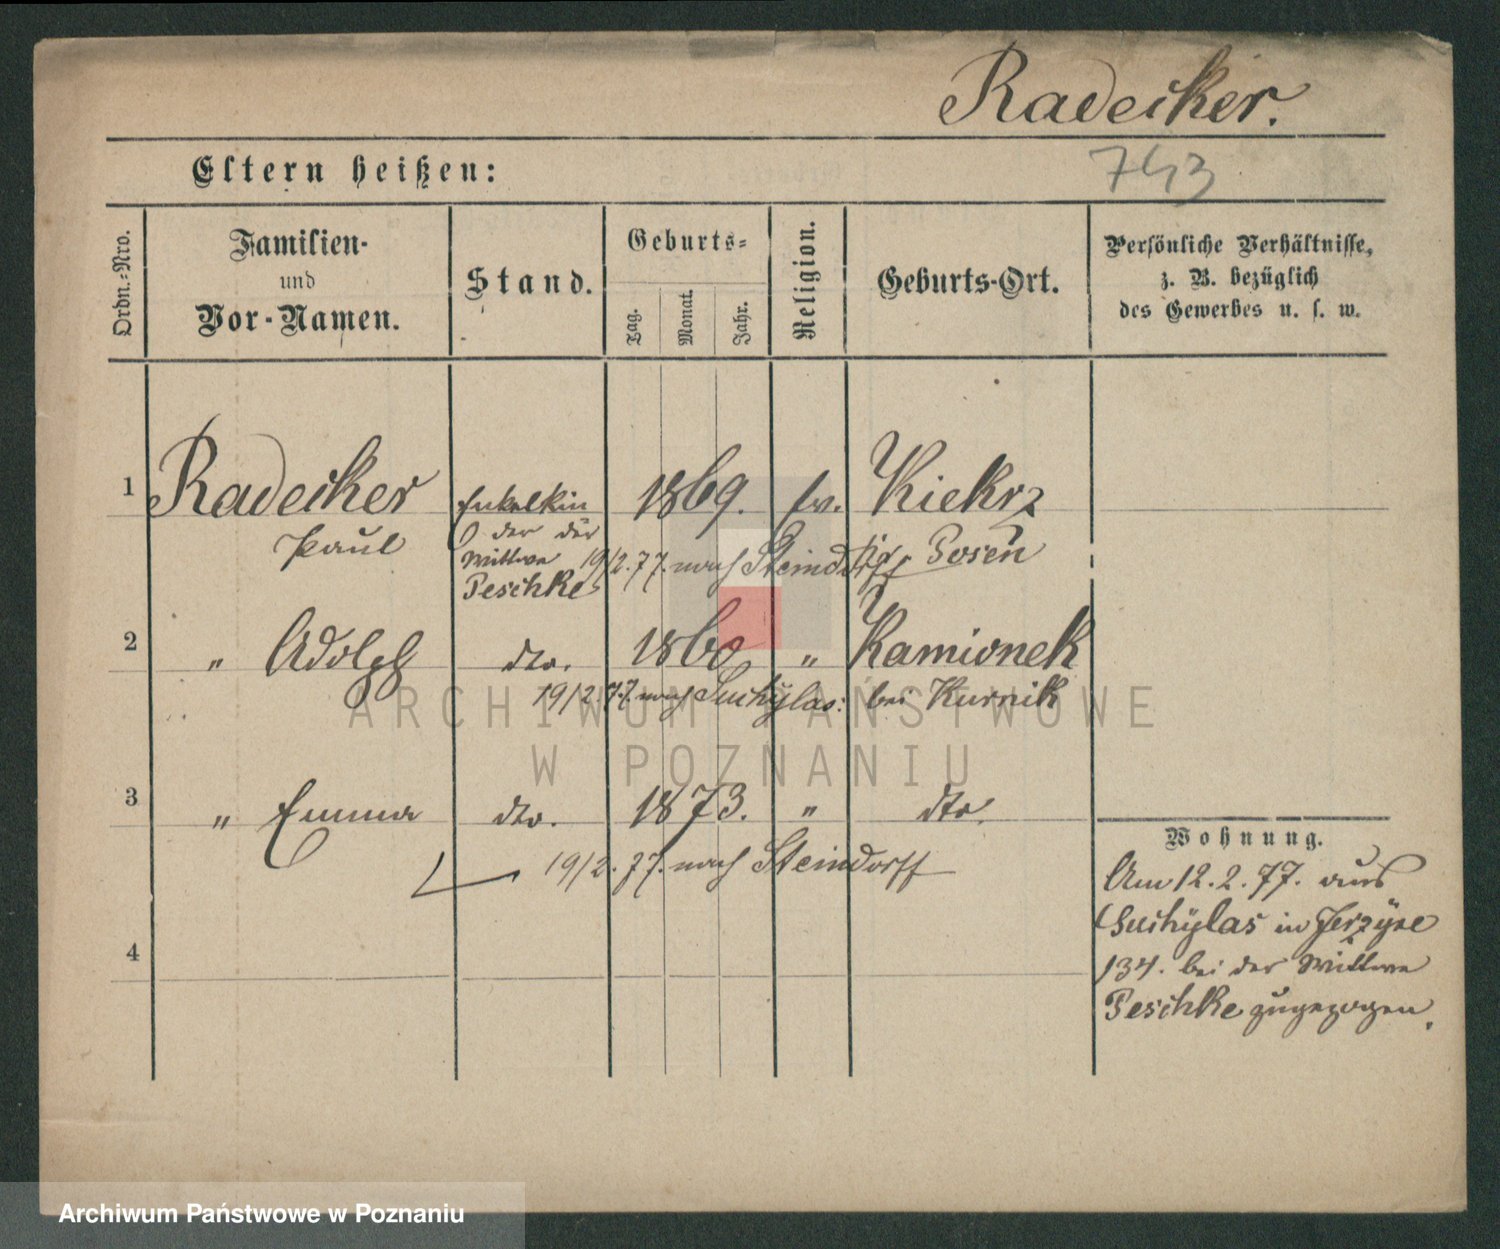 Radecker.
743
Eltern heißen:
Ordn.-Nro.
Familien-
und
Vor-Namen.
Stand.
Geburts-
Tag.
Monat.
Jahr.
Religion.
Geburts-Ort.
Persönliche Verhältnisse,
z. B. bezüglich
des Gewerbes u. s. w.
1 Radecker Enkelkin 1869. ev. Kiekrz
Paul der
Wittwe 19/2.77. nach Steindorff Posen
Peschke
2 " Adolph dto. 1860 " Kamionek
19/2.77 nach Suchylas: bei Kurnik
3 " Emma dto. 1873. " dto.
19/2.77. nach Steindorff
4
Wohnung.
Am 12.2.77. aus
Suchylas in Jerzyce
134. bei der Wittwe
Peschke zugezogen.
ARCHIWUM PAŃSTWOWE
W POZNANIU
Archiwum Państwowe w Poznaniu